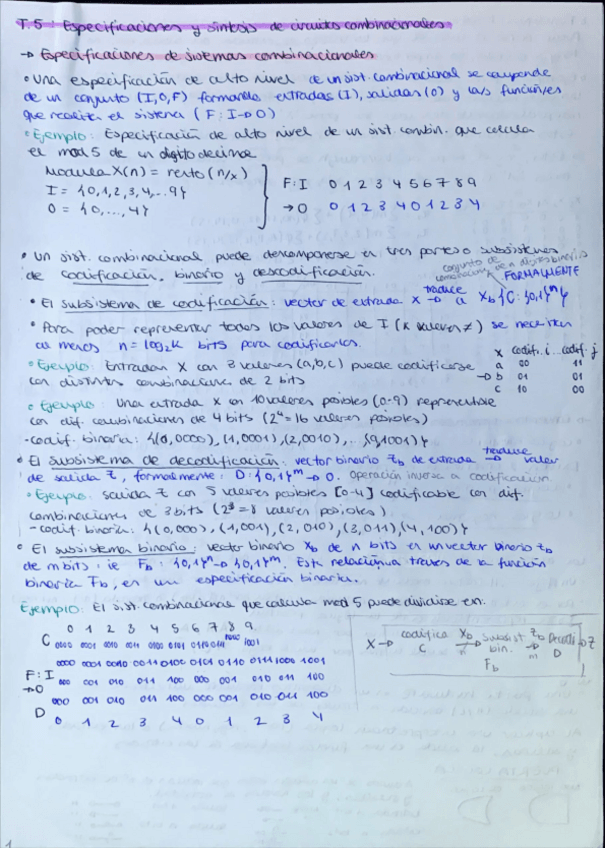 T.5: Especificaciones y síntesis de circuitos combinacionales
→ Especificaciones de sistemas combinacionales
• Una especificación de alto nivel de un sist. combinacional se compone
de un conjunto (I,O,F) formando entradas (I), salidas (O) y las funciones
que realiza el sistema (F: I→O)
• Ejemplo: Especificación de alto nivel de un sist. combin. que calcula
el mod 5 de un dígito decimal
Modula X(n) = resto (n/x)
I = {0,1,2,3,4,...9}
O = {0,...,4}
F: I 0 1 2 3 4 5 6 7 8 9
→ O 0 1 2 3 4 0 1 2 3 4
• Un sist. combinacional puede descomponerse en tres partes o subsistemas
de codificación, binario y descodificación.
conjunto de
combinaciones de n dígitos binarios
• El subsistema de codificación: vector de entrada X traduce → a Xb {C: {0,1}ⁿ} FORMALMENTE
• Para poder representar todos los valores de I (K valores ≠) se necesitan
al menos n = log₂K bits para codificarlos.
• Ejemplo: Entradas X con 3 valores (a,b,c) puede codificarse
con distintas combinaciones de 2 bits
X codif. i ... codif. j
a 00 11
→ b 01 01
c 10 00
• Ejemplo: Una entrada X con 10 valores posibles (0-9) representarse
con dif. combinaciones de 4 bits (2⁴=16 valores posibles)
- codif. binaria: {(0,0000), (1,0001), (2,0010), ... (9,1001)}
• El subsistema de decodificación: vector binario Zb de entrada traduce → valor
de salida Z, formalmente: D: {0,1}ᵐ → O. Operación inversa a codificación
• Ejemplo: salida Z con 5 valores posibles [0-4] codificable con dif.
combinaciones de 3 bits (2³=8 valores posibles)
- codif. binaria: {(0,000), (1,001), (2,010), (3,011), (4,100)}
• El subsistema binario: vector binario Xb de n bits en un vector binario Zb
de m bits: ie Fb: {0,1}ⁿ→{0,1}ᵐ. Esta relación a traves de la función
binaria Fb, en un especificación binaria.
Ejemplo: El sist. combinacional que calcula mod 5 puede dividirse en:
0 1 2 3 4 5 6 7 8 9
C 0000 0001 0010 0011 0100 0101 0110 0111 1000 1001
0000 0001 0010 0011 0100 0101 0110 0111 1000 1001
F: I
→O 000 001 010 011 100 000 001 010 011 100
000 001 010 011 100 000 001 010 011 100
D 0 1 2 3 4 0 1 2 3 4
X → codifica C Xb → n Subsist. bin. Fb Zb → m Decodi D → Z
1